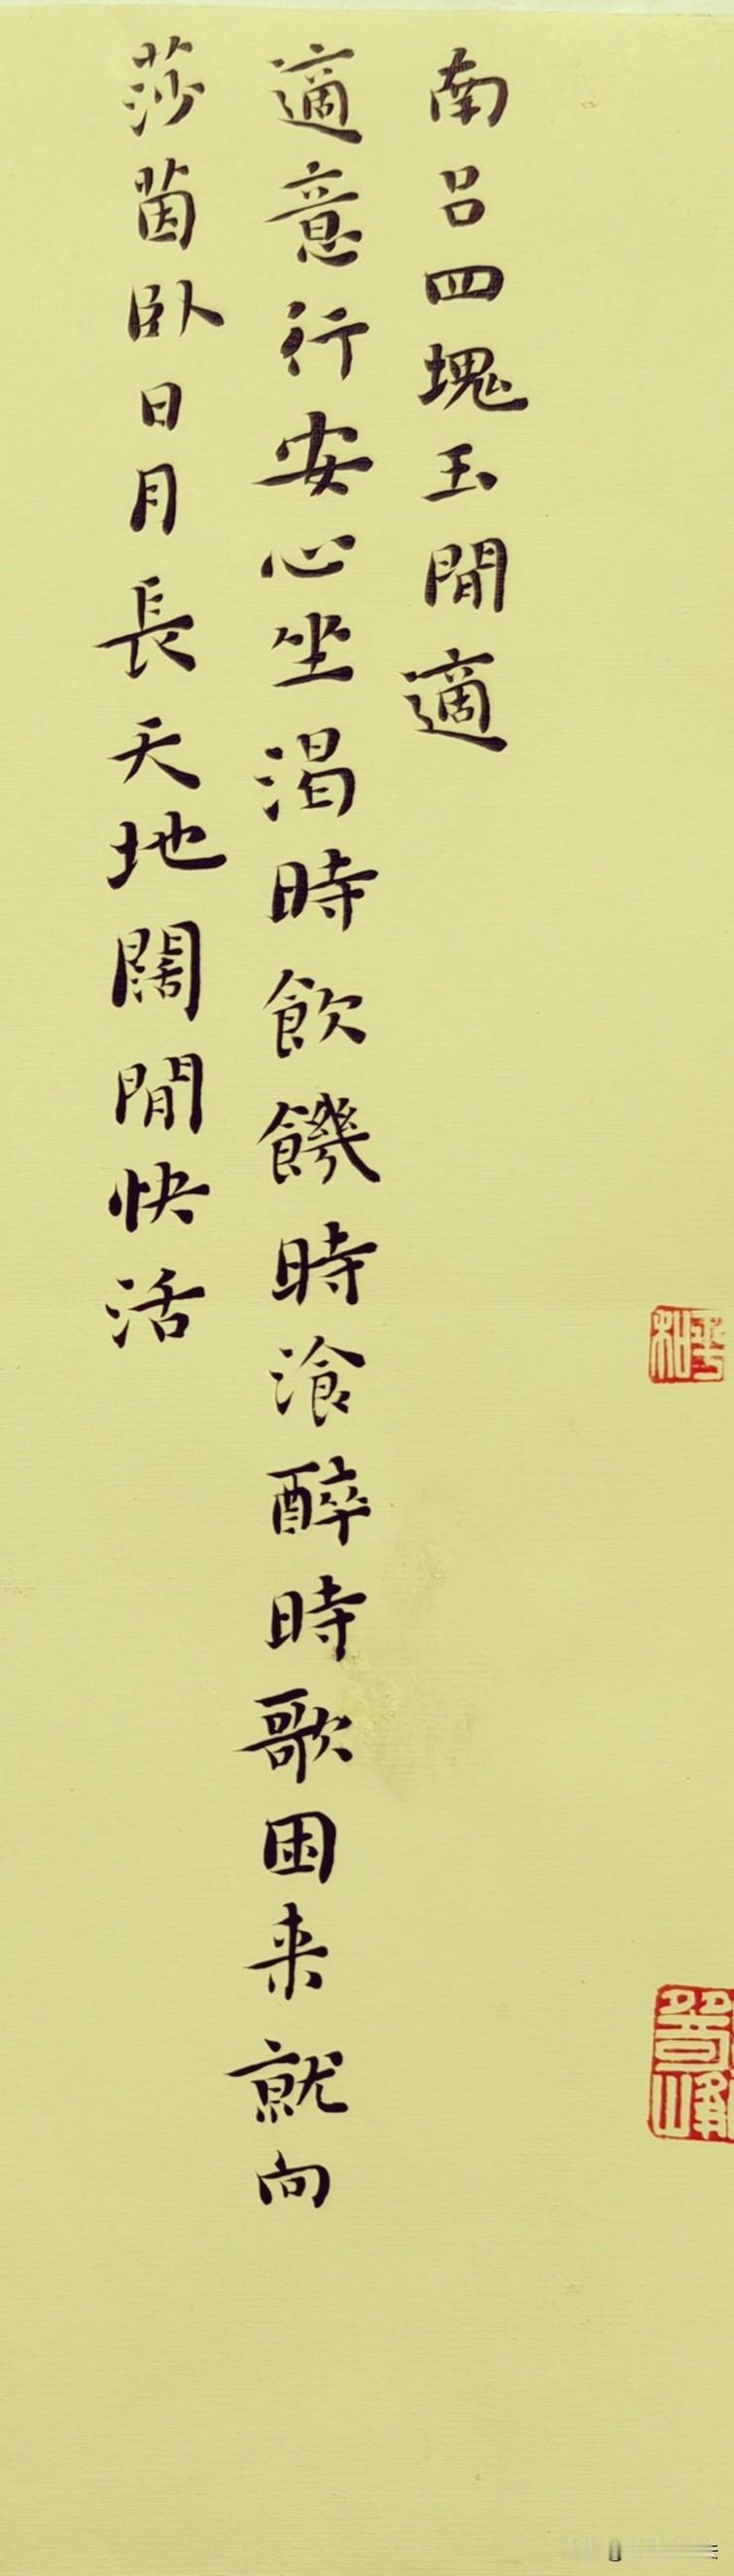 南吕四塊玉閒適
適意行安心坐渴時飲饑時飡醉時歌困来就向
莎茵卧日月長天地闊閒快活